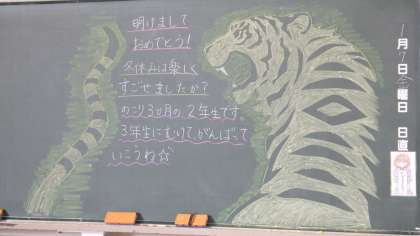 明けまして
おめでとう！
冬休みは楽しく
すごせましたか？
のこり3ヵ月の2年生です。
3年生にむけてがんばって
いこうね☆
1月7日金曜日 日直